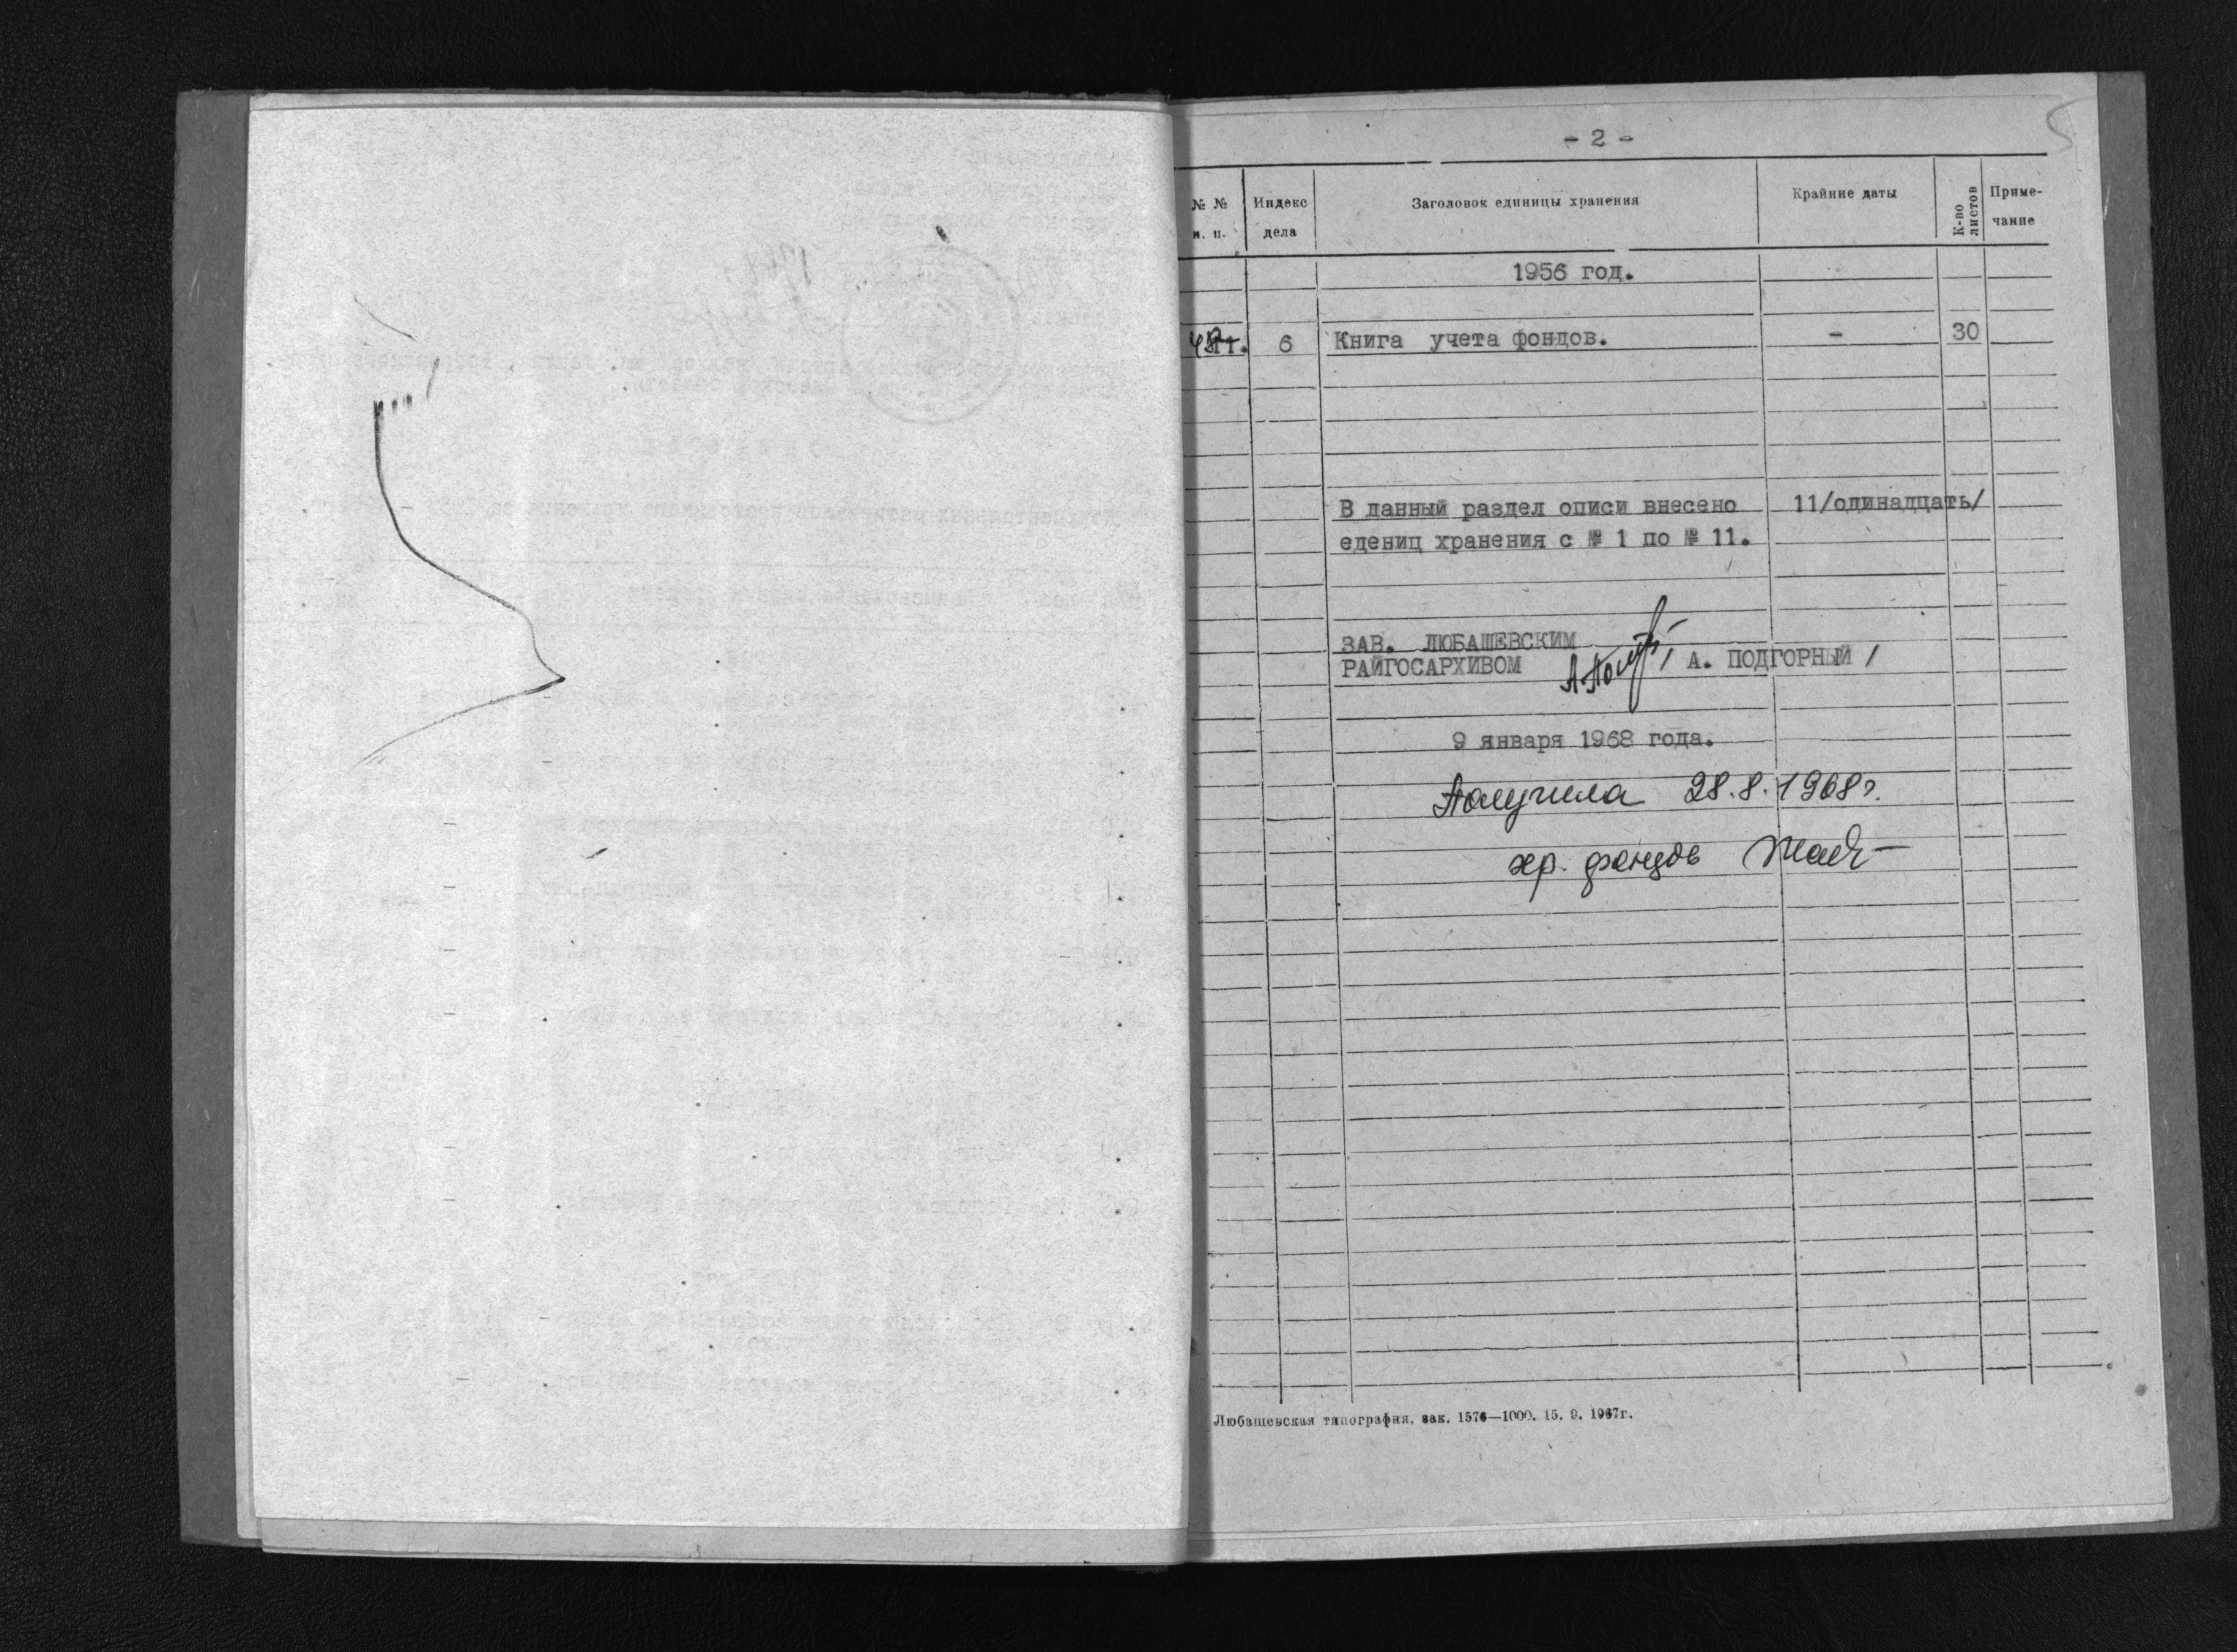 - 2 -
№ №
п. п.
Индекс
дела
Заголовок единицы хранения
Крайние даты
К-во
листов
Приме-
чание
1956 год.
6 Книга учета фондов. - 30
В данный раздел описи внесено 11/одинадцать/
едениц хранения с № 1 по № 11.
ЗАВ. ЛЮБАШЕВСКИМ
РАЙГОСАРХИВОМ / А. ПОДГОРНЫЙ /
9 января 1968 года.
Получила 28.8.1968г.
хр. фондов
Любашевская типография, зак. 1576—1000. 15. 9. 1967г.